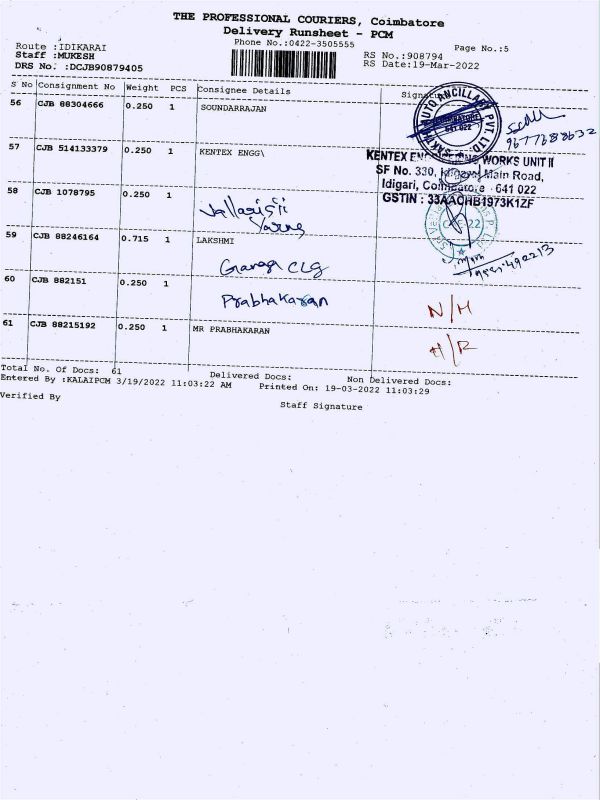 THE PROFESSIONAL COURIERS, Coimbatore
Delivery Runsheet - PCM
Phone No.:0422-3505555
Page No.:5
Route :IDIKARAI
Staff :MUKESH
DRS No. :DCJB90879405
RS No.:908794
RS Date:19-Mar-2022
S No Consignment No Weight PCS Consignee Details Signature
56 CJB 88304666 0.250 1 SOUNDARRAJAN
AUTO ANCILLARY PVT. LTD.
641 022
9677688632
57 CJB 514133379 0.250 1 KENTEX ENGG\
KENTEX ENGINEERING WORKS UNIT II
SF No. 330, Idigarai Main Road,
Idigari, Coimbatore - 641 022
GSTIN : 33AACHB1973K1ZF
58 CJB 1078795 0.250 1
59 CJB 88246164 0.715 1 LAKSHMI
Ganga Clg
60 CJB 882151 0.250 1
Prabhakaran
N/H
61 CJB 88215192 0.250 1 MR PRABHAKARAN
H/R
Total No. Of Docs: 61 Delivered Docs: Non Delivered Docs:
Entered By :KALAIPCM 3/19/2022 11:03:22 AM Printed On: 19-03-2022 11:03:29
Verified By Staff Signature